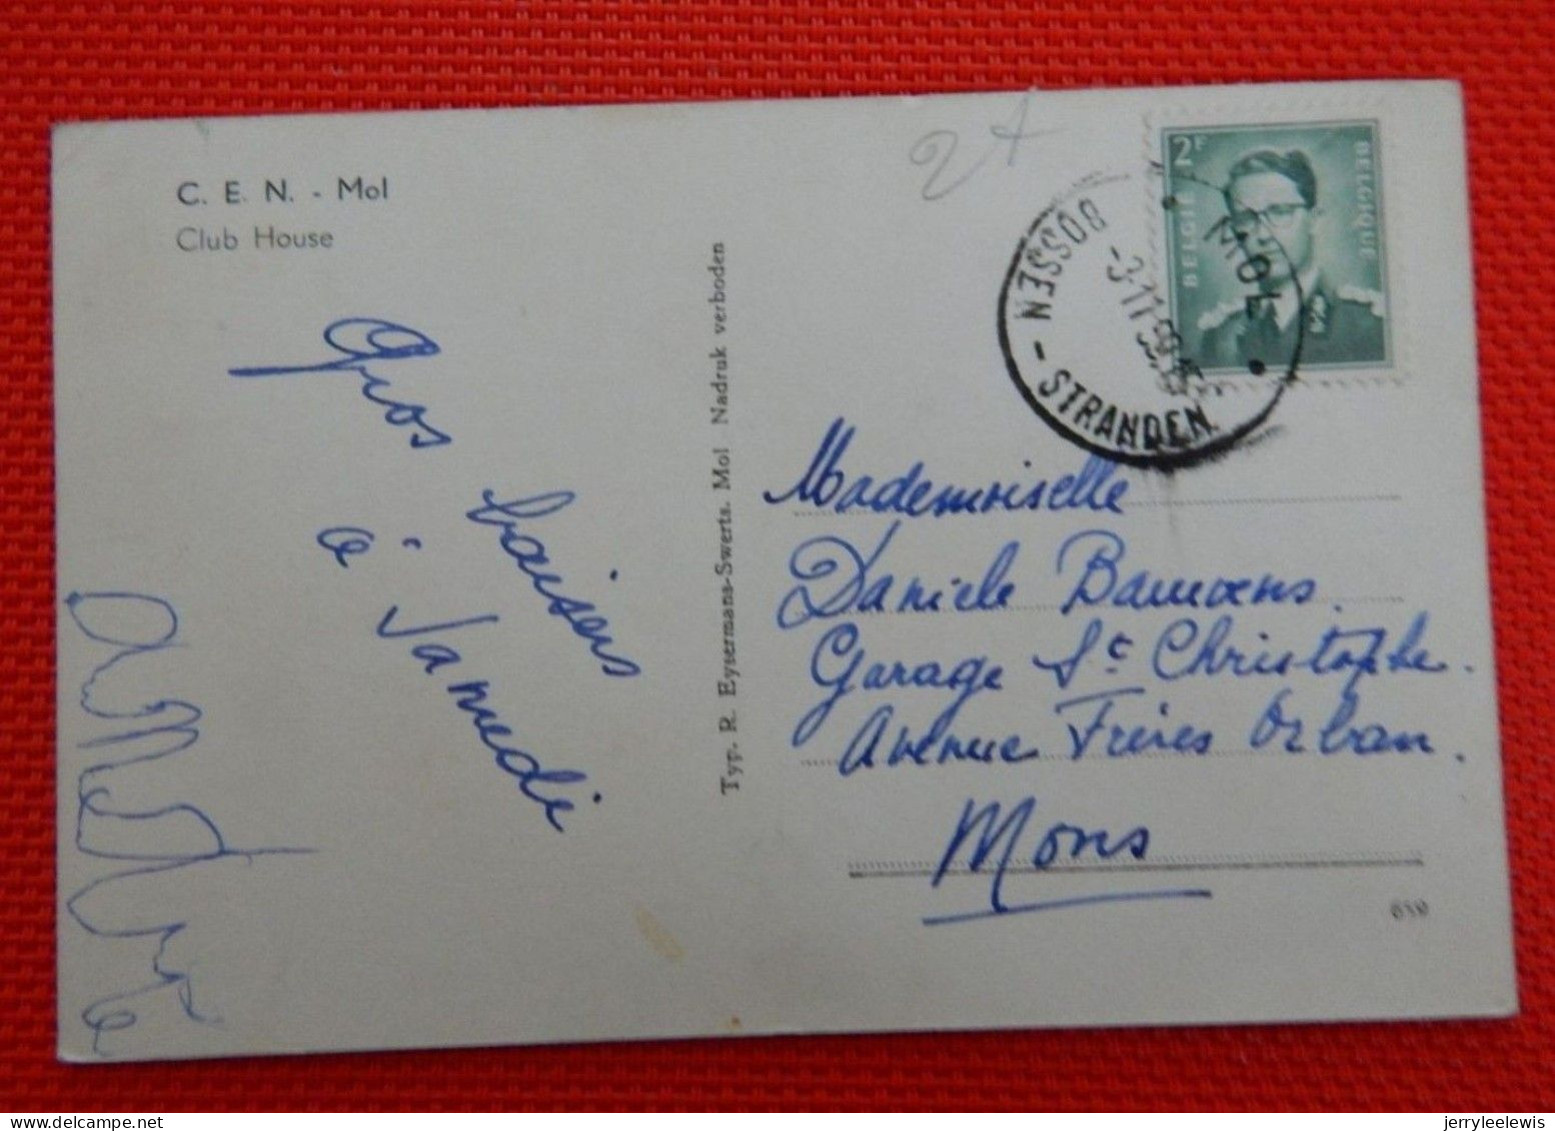 C. E. N. - Mol
Club House
Gros
baisers
à
Samedi
Typ. R. Eysermans-Swerts. Mol Nadruk verboden
2F
BELGIE
BELGIQUE
MOL
BOSSEN - STRANDEN
-3-11
Mademoiselle
Daniele Bauwens.
Garage St Christophe.
Avenue Frères Orban.
Mons
659
jerryleelewis